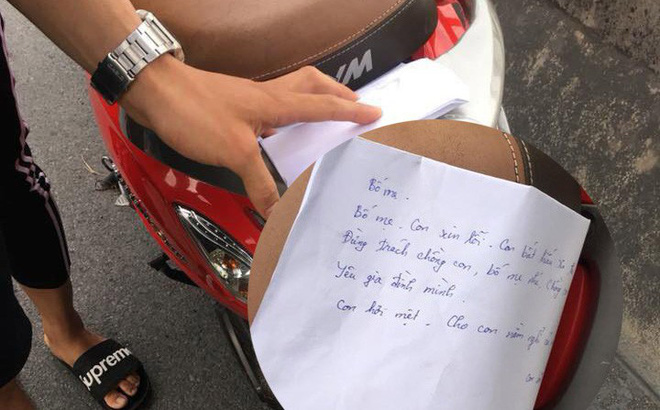 Bố mẹ.
Bố mẹ. Con xin lỗi. Con bất hiếu
Đừng trách chồng con, bố mẹ nhé. Chồng
Yêu gia đình mình.
Con hơi mệt. Cho con nằm nghỉ
con
Supreme